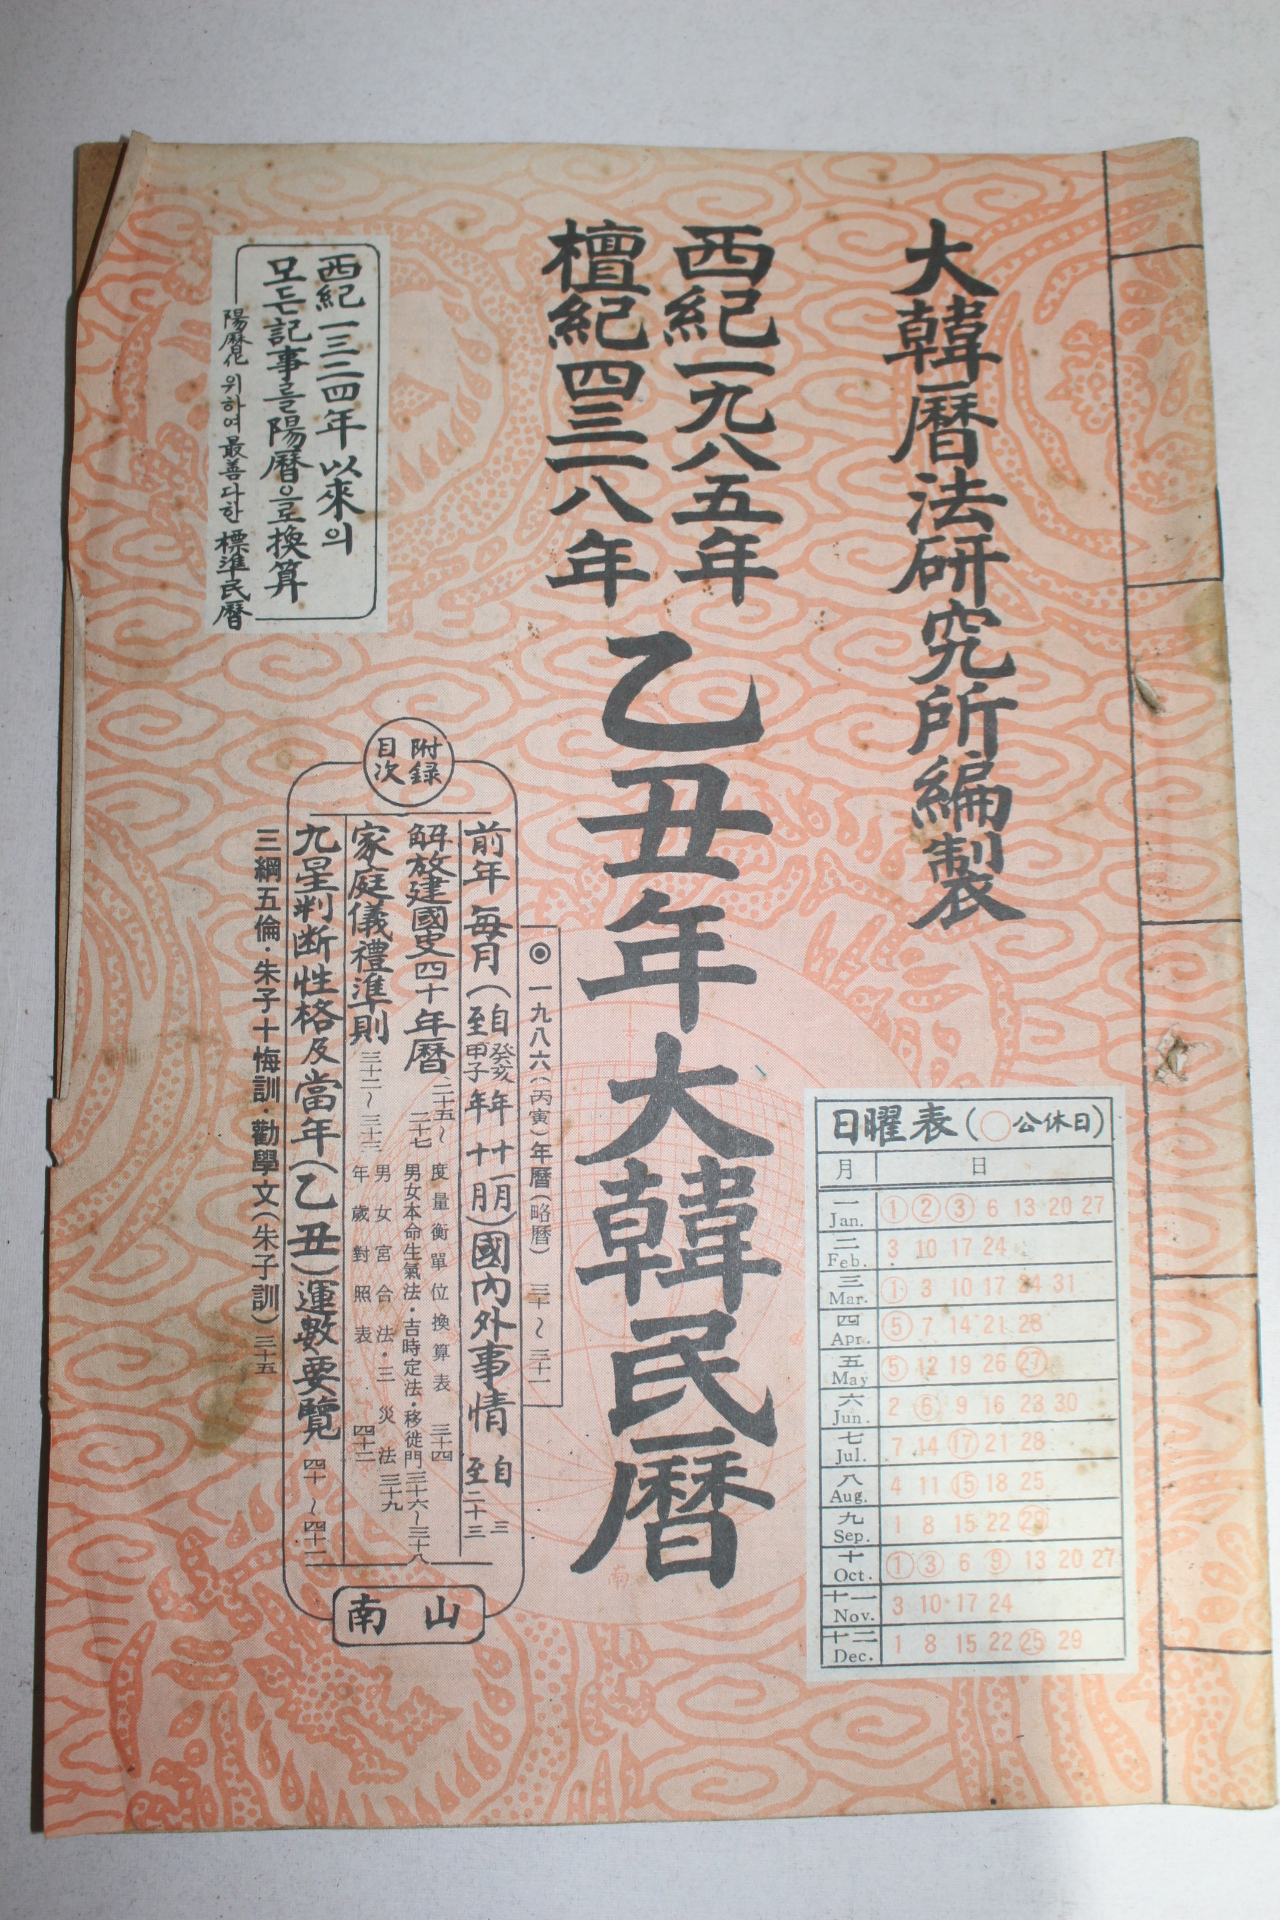 大韓曆法硏究所編製
西紀一九八五年
檀紀四三一八年
乙丑年大韓民曆
西紀一三三四年以來의
모든記事를陽曆으로換算
陽曆化 위하여 最善다한 標準民曆
附錄
目次
◎ 一九八六(丙寅)年曆(略曆) 三十~三十一
前年每月(自癸亥年十一月
至甲子年十月)國內外事情 自三
至二十三
解放建國史四十年曆 二十五~
二十七
度量衡單位換算表 三十四
男女本命生氣法·吉時定法·移徙門 三十六~三十八
家庭儀禮準則 三十二~三十三
男女宮合法·三災法 三十九
年歲對照表 四十二
九星判斷性格及當年(乙丑)運數要覽 四十~四十一
三綱五倫·朱子十悔訓·勸學文(朱子訓) 三十五
南山
日曜表(○公休日)
月 日
一 Jan. ① ② ③ 6 13 20 27
二 Feb. 3 10 17 24
三 Mar. ① 3 10 17 24 31
四 Apr. ⑤ 7 14 21 28
五 May ⑤ 12 19 26 ㉗
六 Jun. 2 ⑥ 9 16 23 30
七 Jul. 7 14 ⑰ 21 28
八 Aug. 4 11 ⑮ 18 25
九 Sep. 1 8 15 22 ㉙
十 Oct. ① ③ 6 ⑨ 13 20 27
十一 Nov. 3 10 17 24
十二 Dec. 1 8 15 22 ㉕ 29
南